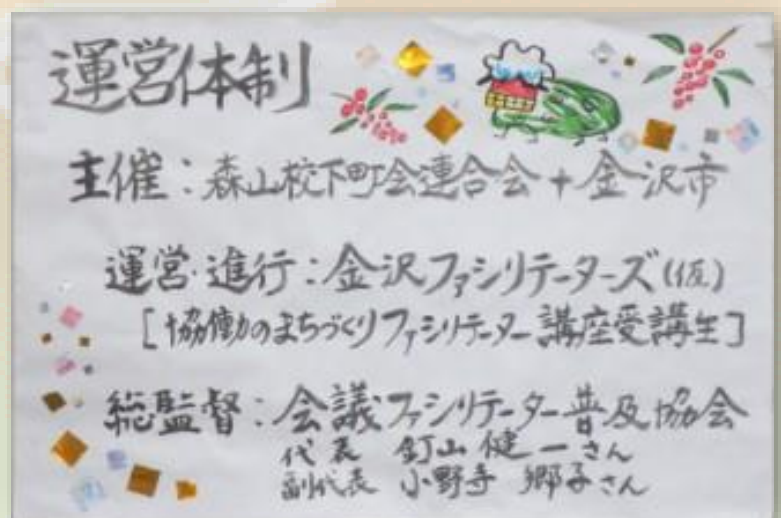 運営体制
主催：森山校下町会連合会＋金沢市
運営・進行：金沢ファシリテーターズ(仮)
[協働のまちづくりファシリテーター講座受講生]
総監督：会議ファシリテーター普及協会
代表 釘山健一さん
副代表 小野寺郷子さん